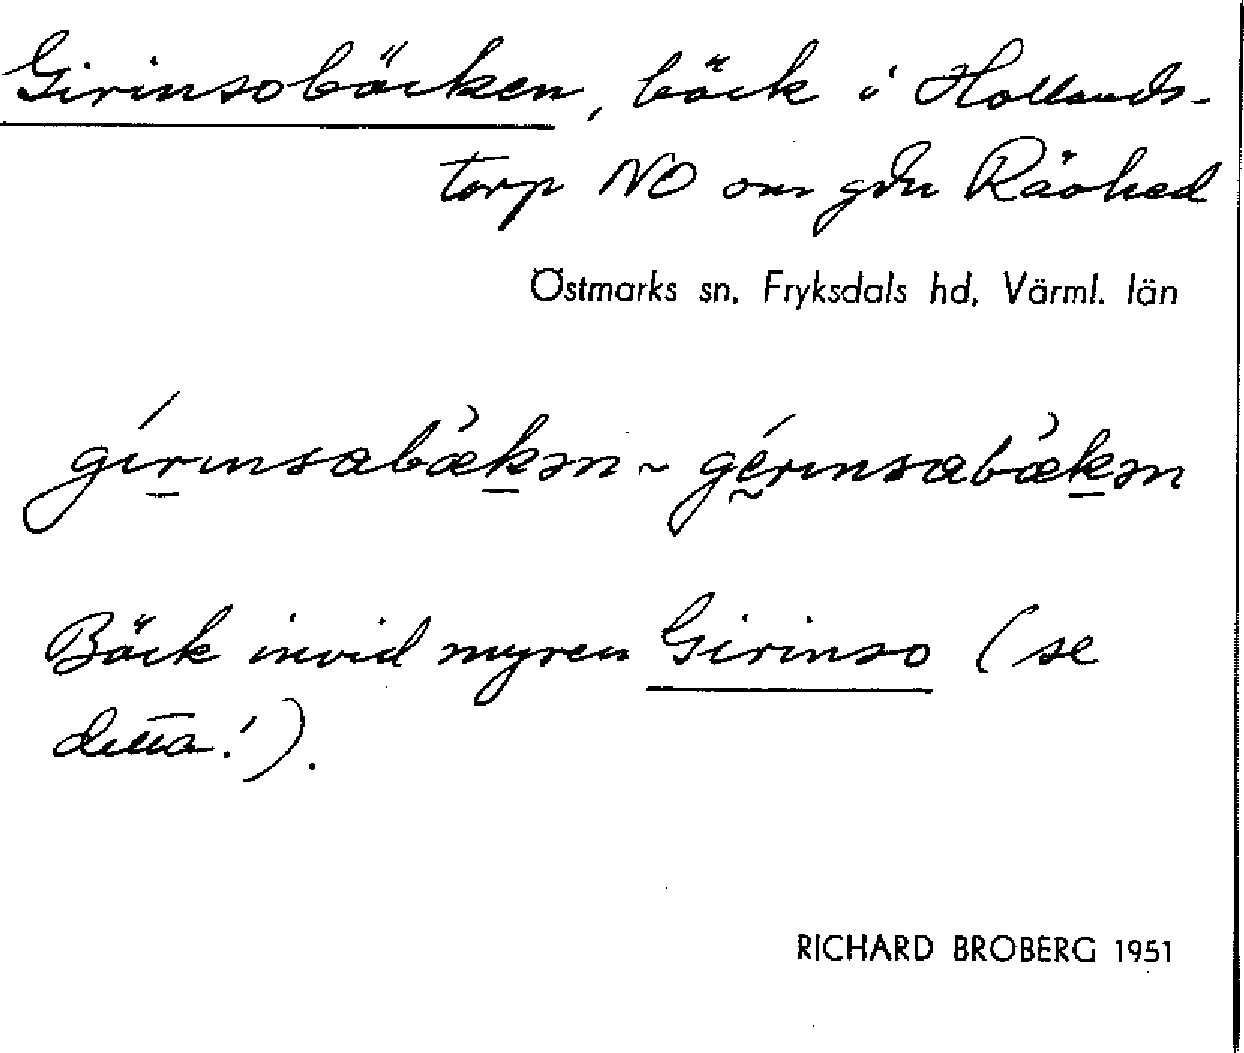 Girinsobäcken, bäck i Hollands-
torp NO om gdn Råohed
Östmarks sn, Fryksdals hd, Värml. län
gírɪnsabæ̀kən ~ gérɪnsabæ̀kən
Bäck invid myren Girinso (se
detta!).
RICHARD BROBERG 1951